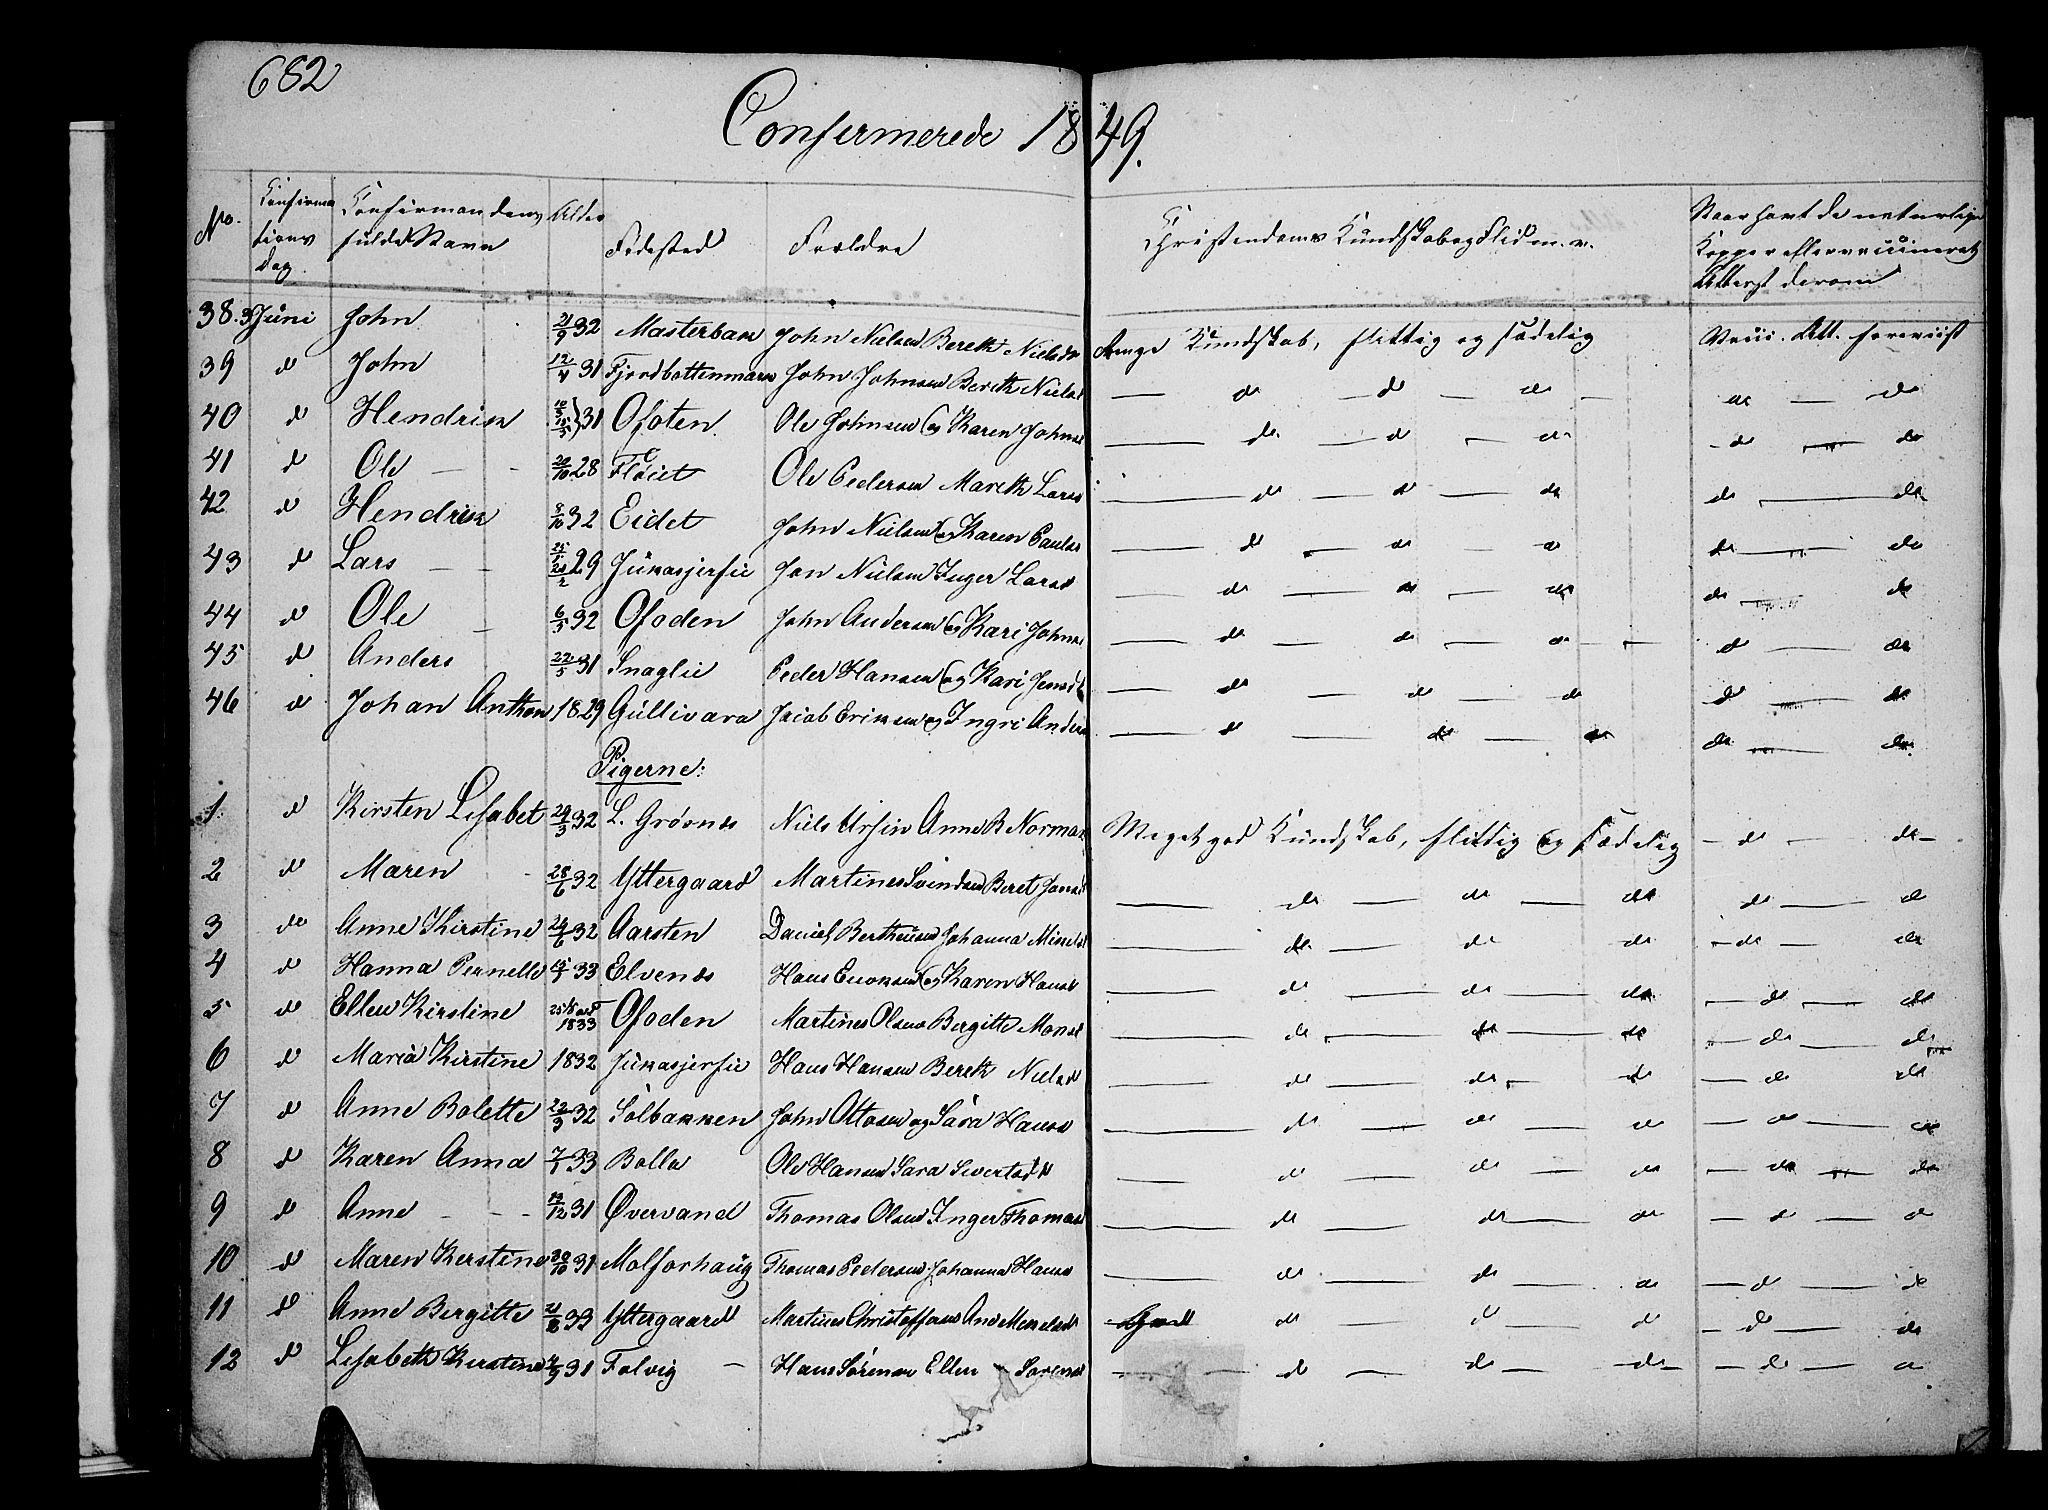 682
Confermerede 1849.
No. Confirmationsdag Confirmandens fulde Navn Alder Fødested Forældre Christendoms Kundskab og Flid m. v. Naar havt de naturlige Kopper eller vaccineret Attest derom
38. 3 Juni John 21/9 32 Masterbak John Nielsen Bereth Nielsd Kundskab, flittig og sædelig Vacc. Att. foreviist
39 d John 12/4 31 Fjordbottenmark John Johnsen Bereth Nielsd — d — d — d — d — d
40 d Hendrik 31 Ofoten Ole Johnsen og Karen Johns — d — d — d - d — d
41 d Ole — - 20/10 28 Fløiet Ole Pedersen Mareth Larsd — d — d — d d — d
42 d Hendrik 8/10 32 Eidet John Nielsen og Karen Paulsd — d — d — d d — d
43 d Lars — - 29 Jukasjerfie Jon Nielsen Inger Larsd — d — d — d d — d
44 d Ole — 6/5 32 Ofoden John Andersen og Kari Johns — d — d — d — d — d
45 d Anders 22/5 31 Snaglie Peder Hansen og Kari Jensd — d — d — d d — d
46 d Johan Anthon 1829 Gullivara Jacob Eriksen og Ingri Anders — d — d — d d — d
Pigerne:
1 d Kirsten Lisabet 29/3 32 L. Grøsnes Niels Ursin Anne B Norman Meget god Kundskab, flittig og sædelig - d — d -
2 d Maren - 28/6 32 Yttergaard Martines Svendsen Beret Jonsd — d — d — d d — d
3 do Anne Kirstine 32 Aarsten Daniel Bertheusen Johanna Mikels — d — d d - d — d
4 d Hanna Pernelle 33 Elvenes Hans Enoksen og Karen Hansd — d — d — d - d — d
5 d Ellen Kirstine 1833 Ofoden Martines Olsen Bergitte Monsd — d — d — d - d — d
6 d Maria Kirstine 1832 Jukasjerfie Hans Hansen Bereth Nielsd — d — d - d — d d
7 d Anne Bolette 22/3 32 Solbakken John Ottosen og Sara Hansd — d — d d - d — d
8 d Karen Anna 33 Bolle Ole Hansen Sara Sivertsd — d — d — d - d — d
9 d Anne - - - 31 Øvervand Thomas Olsen Inger Thomasd — d — d — d - d — d
10 d Maren Kerstine 30/10 31 Molforhaug Thomas Pedersen Johanna Hansd — d — d — d - d — d
11 d Anne Bergitte 33 Yttergaard Martines Christoffersen Ane Mikelsd God d — d — d - d — d
12 d Lisabeth Kirstine 31 Folvig — Hans Sørensen Ellen Sorensd — d — d — d - d — d